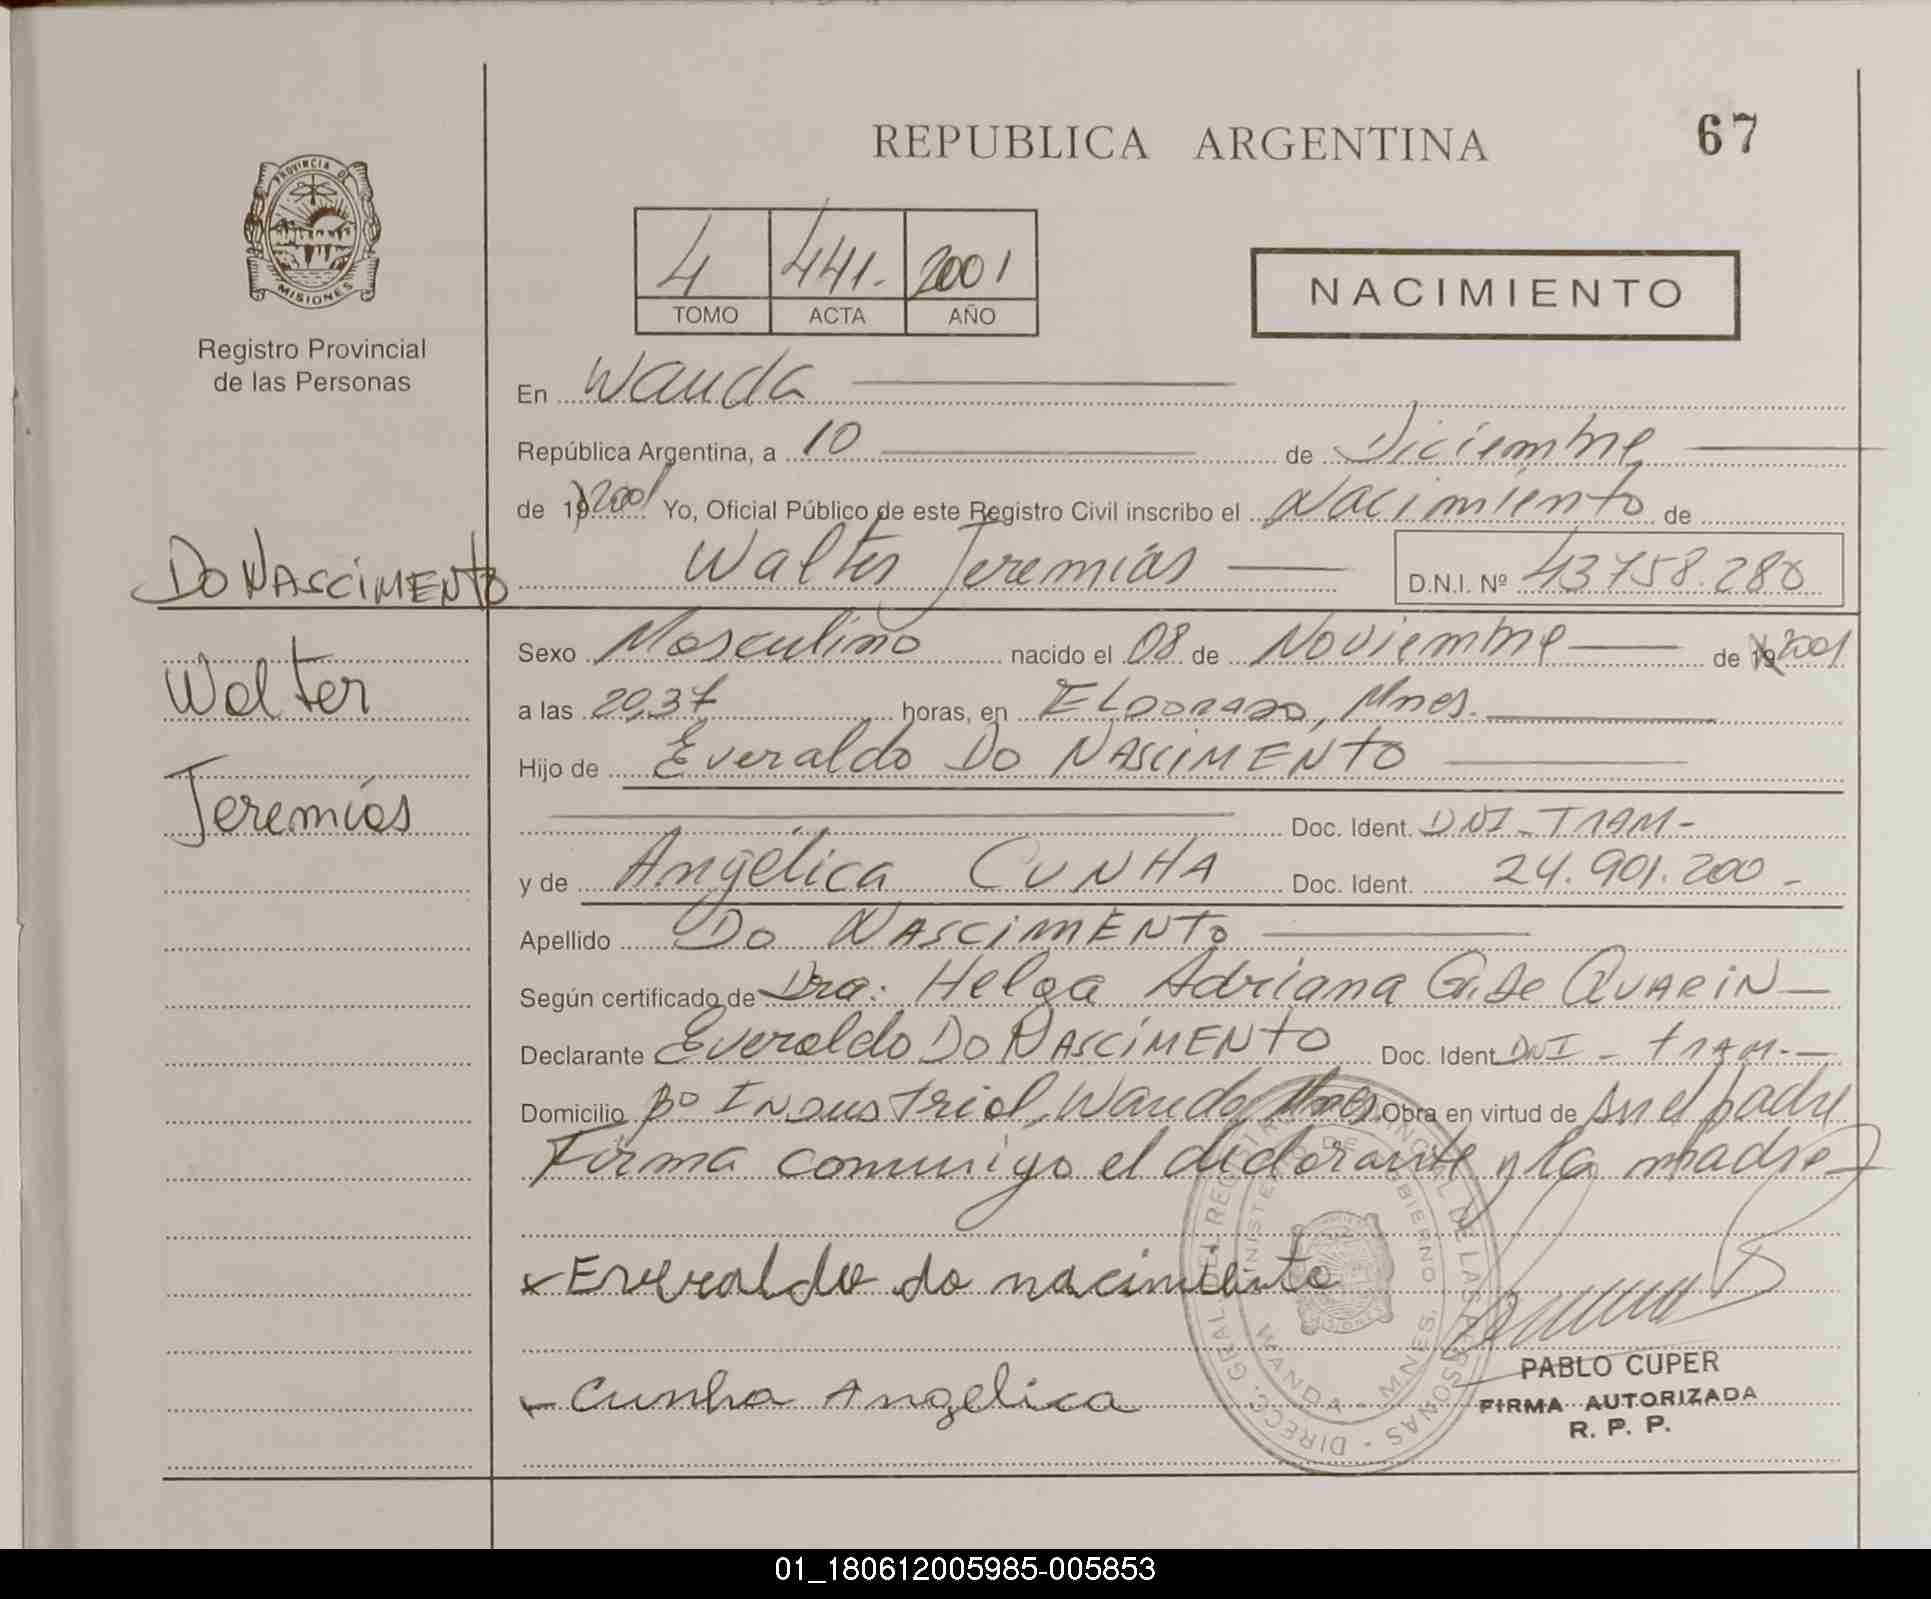 REPUBLICA ARGENTINA
67
PROVINCIA DE
MISIONES
Registro Provincial
de las Personas
4 441. 2001
TOMO ACTA AÑO
NACIMIENTO
En Wanda
República Argentina, a 10 de Diciembre
de 19 2001 Yo, Oficial Público de este Registro Civil inscribo el Nacimiento de
Walter Jeremías D.N.I. Nº 43758.280
Do NASCIMENTO
Walter
Jeremías
Sexo Masculino nacido el 08 de Noviembre de 19 2001
a las 20,37 horas, en ELDORADO, Mnes.
Hijo de Everaldo Do NASCIMENTO
Doc. Ident. DNI - TRAM -
y de Angélica CUNHA Doc. Ident. 24.901.200 -
Apellido Do NASCIMENTO
Según certificado de Dra. Helga Adriana G. de QUARIN
Declarante Everaldo Do NASCIMENTO Doc. Ident DNI - TRAM. -
Domicilio Bº Industrial, Wanda, Mnes Obra en virtud de ser el padre
Firma conmigo el declarante y la madre
x Everaldo do nacimiento
x Cunha Angelica
DIRECC. GRAL. DEL REGISTRO PROVINCIAL DE LAS PERSONAS -
MINISTERIO DE GOBIERNO
WANDA - MNES.
PABLO CUPER
FIRMA AUTORIZADA
R. P. P.
01_180612005985-005853